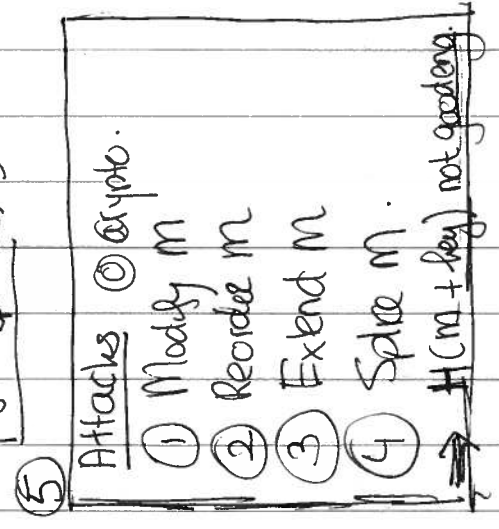 ⑤
Attacks ⓪ Crypto.
① Modify m
② Reorder m
③ Extend m
④ Splice m.
⇒ H(m + key) not good eng.